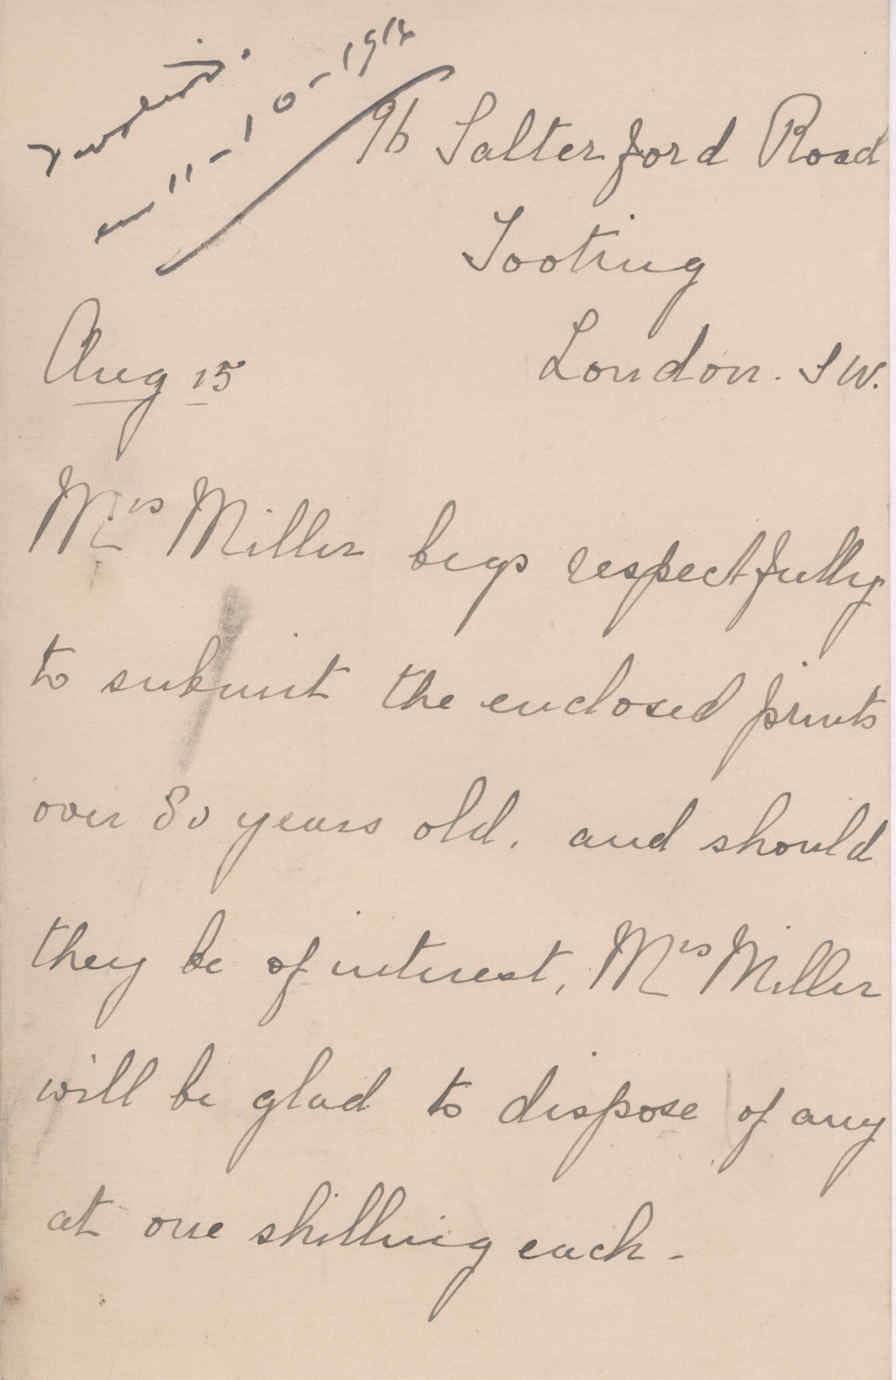 11-10-1912
96 Salterford Road
Tooting
London. S W.
Aug 15
Mrs Miller begs respectfully
to submit the enclosed prints
over 80 years old, and should
they be of interest, Mrs Miller
will be glad to dispose of any
at one shilling each -